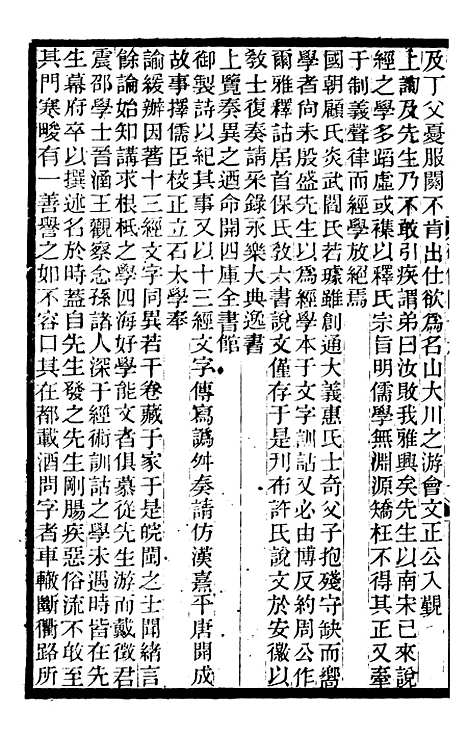 及丁父憂服闋不肯出仕欲爲名山大川之游會文正公入覲
上詢及先生乃不敢引疾謂弟曰汝敗我雅興矣先生以南宋已來說
經之學多蹈虛或襍以釋氏宗旨明儒學無淵源矯枉不得其正又牽
于制義聲律而經學放絕焉
國朝顧氏炎武閻氏若璩雖創通大義惠氏士奇父子抱殘守缺而嚮
學者尙未殷盛先生以爲經學本于文字訓詁又必由博反約周公作
爾雅釋詁居首保氏敎六書說文僅存于是刊布許氏說文於安徽以
敎士復奏請采錄永樂大典逸書
上覽奏異之迺命開四庫全書館
御製詩以紀其事又以十三經文字傳寫譌舛奏請仿漢嘉平唐開成
故事擇儒臣校正立石太學奉
諭緩辦因著十三經文字同異若干卷藏于家于是皖閩之士聞緒言
餘論始知講求根柢之學四海好學能文者俱慕從先生游而戴徵君
震邵學士晉涵王觀察念孫諸人深于經術訓詁之學未遇時皆在先
生幕府卒以撰述名於時蓋自先生發之先生剛腸疾惡俗流不敢至
其門寒畯有一善譽之如不容口其在都載酒問字者車轍斷衢路所